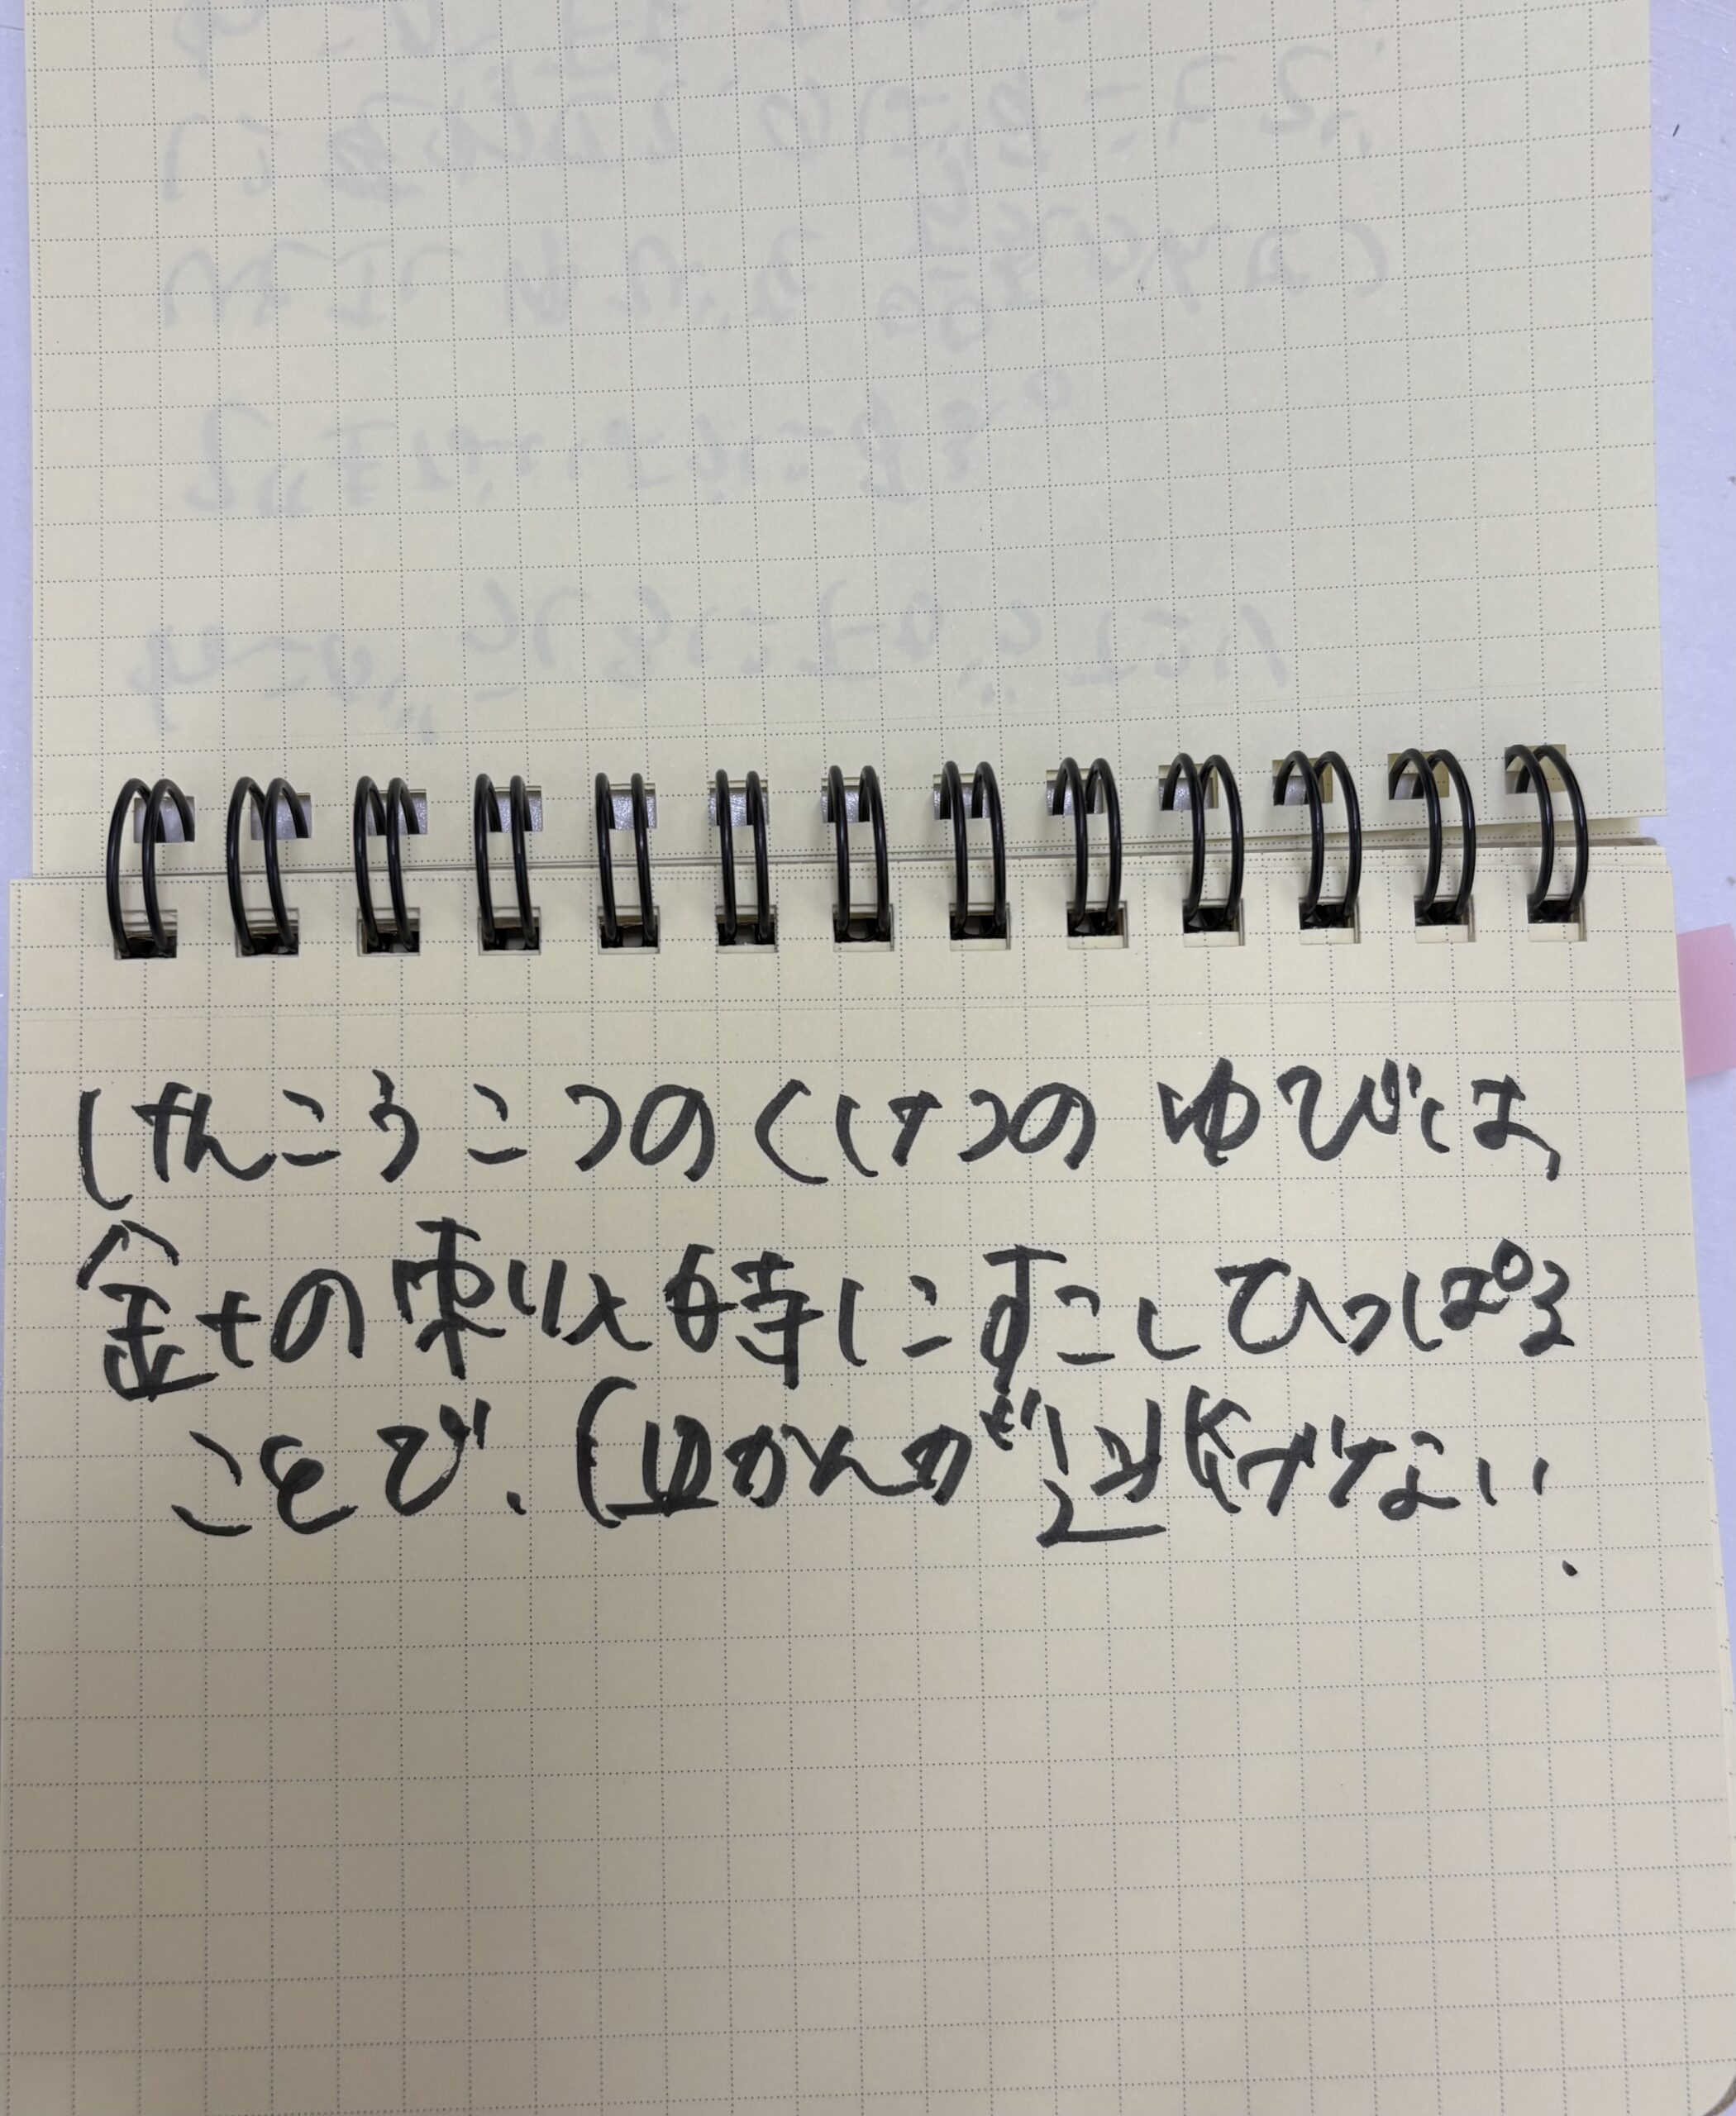 けんこうこつのくけつのゆびは、
針の刺入時にすこしひっぱる
ことで、血かんが逃げない.